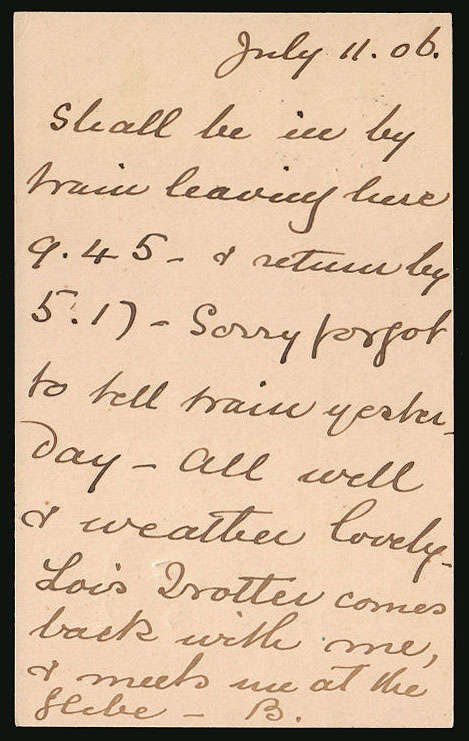 July 11. 06.
Shall be in by
train leaving here
9.45 - & return by
5.17 - Sorry forgot
to tell train yester-
day - All well
& weather lovely -
Lois Trotter comes
back with me,
& meets me at the
Glebe - B.